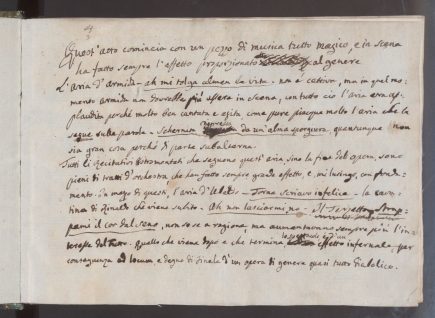 Quest'atto comincia con un pezzo di musica tutto magico, e in scena
ha fatto sempre l'effetto proporzionato al genere
L'aria d'Armida - ah mi tolga almen la vita - non è cattiva, ma in quel mo-
mento Armida non dovrebbe più essere in scena, con tutto ciò l'aria era ap-
plaudita perché molto ben cantata e agita, come pure piacque molto l'aria che la
segue sulla parola - Schernita da un alma quantunque non
sia gran cosa perché di parte subalterna.
Tutti li recitativi istromentati che seguono quest'aria sino la fine del opera, sono
pieni di tratti d'orchestra che han fatto sempre grande effetto, e mi lusingo, con fonda-
mento. In mezzo di questi l'aria d'Ubaldo - Torna schiavo infelice - la cava-
tina di Rinaldo che viene subito - Ah non lasciarmi no - Il Terzetto Strap-
pami il cor dal seno, non so se a ragione, ma aumentavano sempre più l'in-
teresse del tutto. Quello che viene dopo e che termina lo spettacolo è d'un effetto infernale, per
conseguenza ad locum e degno di finale d'un opera di genere quasi tutto diabolico.